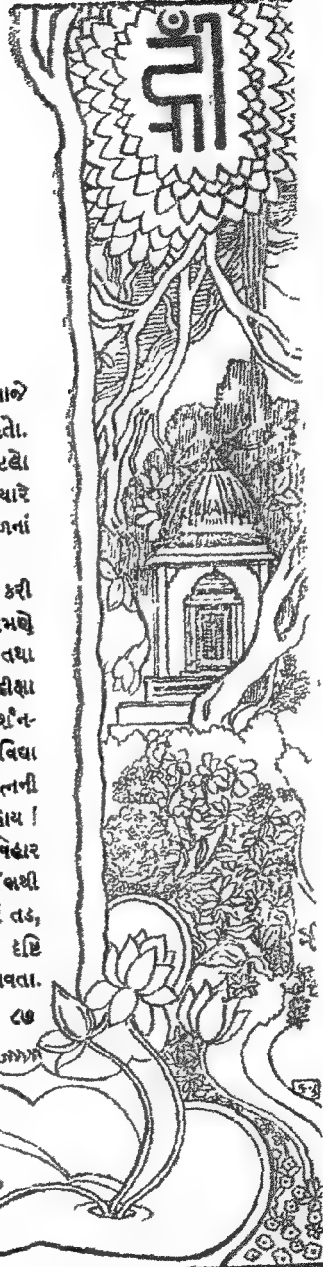 તો.
ટલો
યારે
ળનાં
કરી
મણે
તથા
દીક્ષા
ર્શન-
વિદ્યા
ત્નની
હાય !
વિહાર
ભથી
તડ,
દૃષ્ટિ
વતા.
૮૭